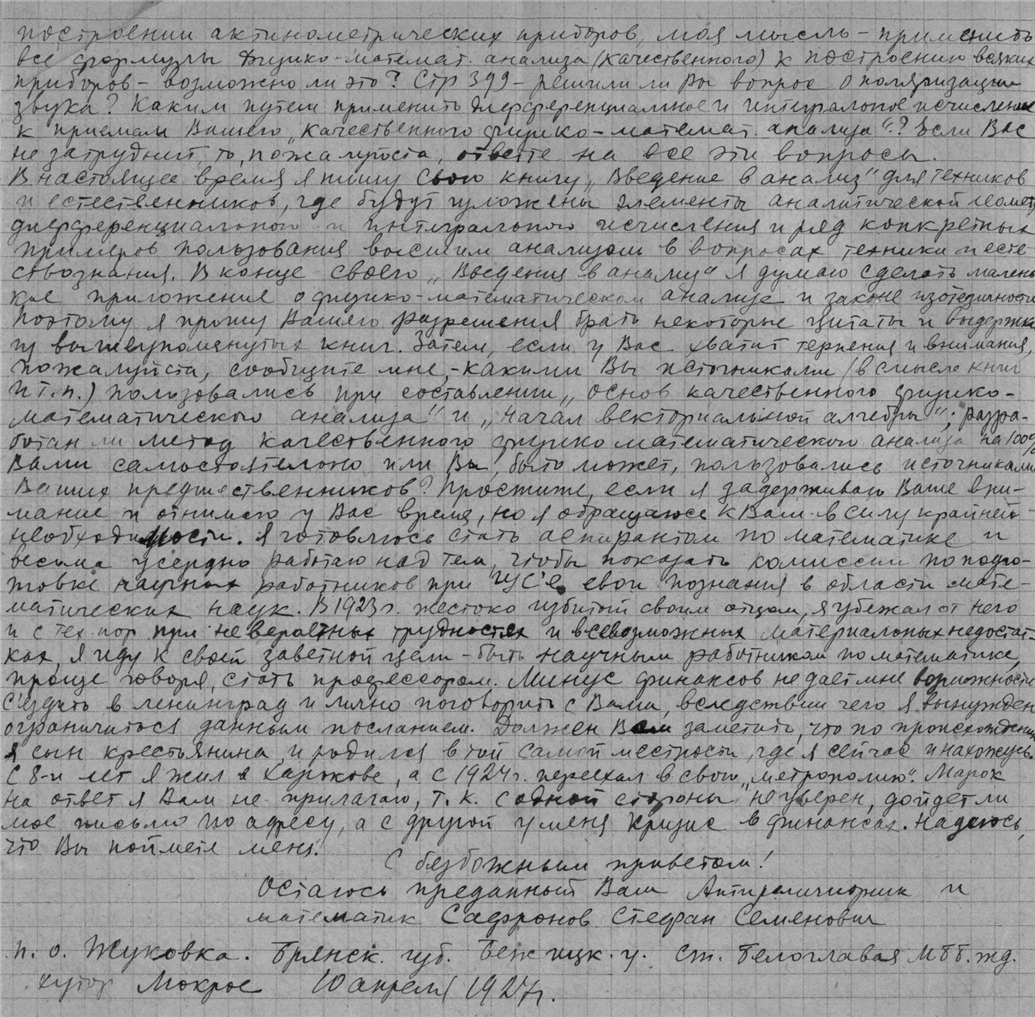 построении актинометрических приборов, моя мысль – применить
все формулы физико-математ. анализа (качественного) к построению всяких
приборов – возможно ли это? Стр 399 – решили ли Вы вопрос о поляризации
звука? Каким путем применить дифференциальное и интегральное исчисления
к приемам Вашего „качественного физико-математ. анализа“? Если Вас
не затруднит, то, пожалуйста, ответте на все эти вопросы.
В настоящее время я пишу свою книгу „Введение в анализ“ для техников
и естественников, где будут изложены элементы аналитической геомет.
дифференциального и интегрального исчисления и ряд конкретных
примеров пользования высшим анализом в вопросах техники и есте-
ствознания. В конце своего „Введения в анализ“ я думаю сделать малень-
кое приложение о физико-математическом анализе и законе изотетичности
Поэтому я прошу Вашего разрешения брать некоторые цитаты и выдержки
из вышеупомянутых книг. Затем, если у Вас хватит терпения и внимания,
пожалуйста, сообщите мне, – какими Вы источниками (в смысле книг
и т.п.) пользовались при составлении „основ качественного физико-
математического анализа“ и „начал векториальной алгебры“, разра-
ботан ли метод качественного физико математического анализа на 100%
Вами самостоятельно или Вы, быть может, пользовались источниками
Ваших предшественников? Простите, если я задерживаю Ваше вни-
мание и отнимаю у Вас время, но я обращаюсь к Вам в силу крайней
необходимости. Я готовлюсь стать аспирантом по математике и
весьма усердно работаю над тем, чтобы показать комиссии по подго-
товке научных работников при свои познания в области мате-
матических наук. В 1923 г. жестоко избитый своим отцом, я убежал от него
и с тех пор при невероятных трудностях и всевозможных материальных недостат-
ках, я иду к своей заветной цели – быть научным работником по математике,
проще говоря, стать профессором. Минус финансов не дает мне возможности
съездить в Ленинград и лично поговорить с Вами, вследствии чего я вынужден
ограничиться данным посланием. Должен Вам заметить, что по происхождению
я сын крестьянина, и родился в той самой местности, где я сейчас и нахожусь.
С 8-и лет я жил в Харькове, а с 1924 г. переехал в свою „метрополию“. Марок
на ответ я Вам не прилагаю, т.к. с одной стороны не уверен, дойдет ли
мое письмо по адресу, а с другой у меня кризис в финансах. Надеюсь,
что Вы поймете меня.
С безбожным приветом!
Остаюсь преданный Вам Антирелигиозник и
математик Сафронов Стефан Семенович
п. о. Жуковка. Брянск. губ. Бежицк. у. ст. Белоглавая МББ.жд.
хутор Мокрое 10 апреля 1927 г.